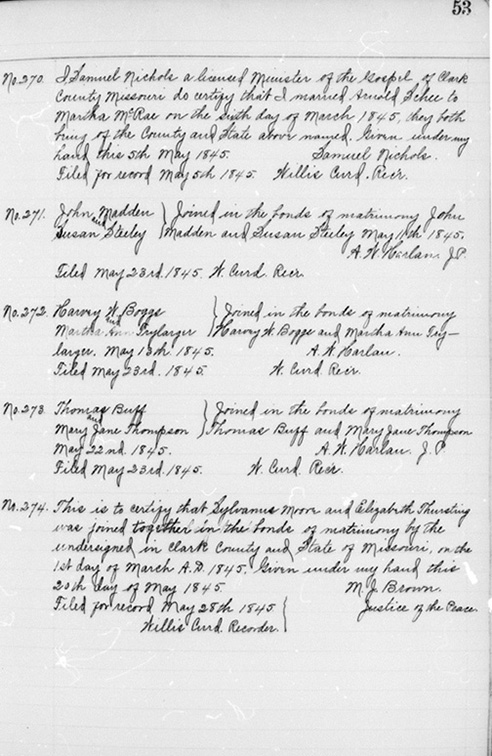 53
No. 270. I Samuel Nichols a licensed Minister of the Gospel of Clark
County Missouri do certify that I married Arnold Schee to
Martha McRae on the sixth day of March 1845, they both
being of the County and State above named. Given under my
hand this 5th May 1845. Samuel Nichols.
Filed for record May 5th 1845 Willis Curd. Recr.
No. 271. John Madden } Joined in the bonds of matrimony John
Susan Steeley } Madden and Susan Steeley May 11th 1845.
A. W. Harlan. J.P.
Filed May 23rd. 1845. W. Curd. Recr
No. 272. Harvey W. Boggs } Joined in the bonds of matrimony
and
Martha Ann Frylarger } Harvey W. Boggs and Martha Ann Fry-
larger. May 13th 1845. A. W. Harlan.
Filed May 23rd. 1845 W. Curd Recr.
No. 273. Thomas Buff } Joined in the bonds of matrimony
and
Mary Jane Thompson } Thomas Buff and Mary Jane Thompson
May 22nd. 1845. A. W. Harlan. J.P.
Filed May 23rd. 1845. W. Curd. Recr.
No. 274. This is to certify that Sylvanus Moor and Elizabeth Thursting
was joined together in the bonds of matrimony by the
undersigned in Clark County and State of Missouri, on the
1st day of March A.D. 1845. Given under my hand this
20th day of May 1845. M. J. Brown.
Filed for record May 28th 1845 { Justice of the Peace
Willis Curd. Recorder. {